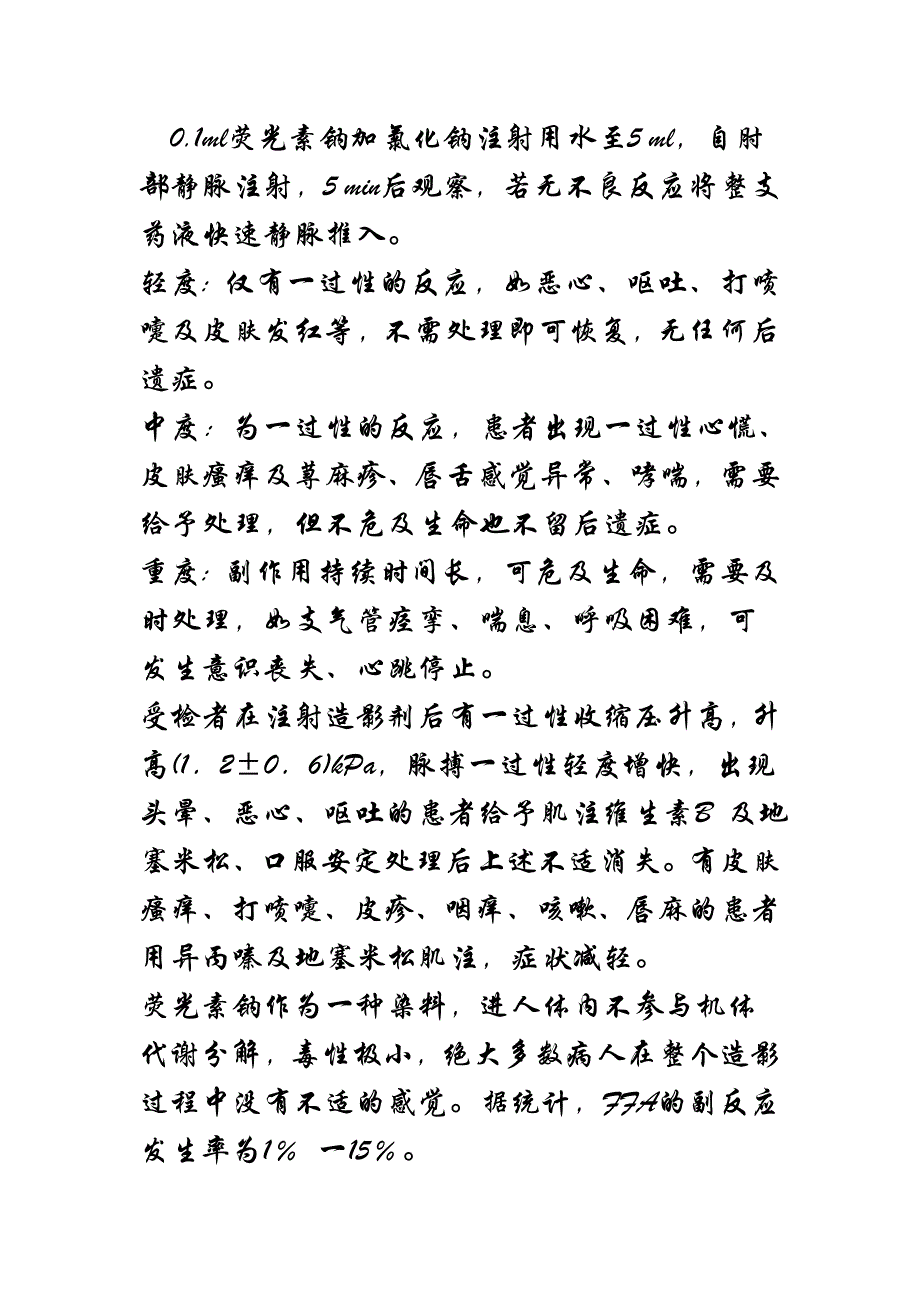 0.1ml荧光素钠加氯化钠注射用水至5ml，自肘
部静脉注射，5min后观察，若无不良反应将整支
药液快速静脉推入。
轻度：仅有一过性的反应，如恶心、呕吐、打喷
嚏及皮肤发红等，不需处理即可恢复，无任何后
遗症。
中度：为一过性的反应，患者出现一过性心慌、
皮肤瘙痒及荨麻疹、唇舌感觉异常、哮喘，需要
给予处理，但不危及生命也不留后遗症。
重度：副作用持续时间长，可危及生命，需要及
时处理，如支气管痉挛、喘息、呼吸困难，可
发生意识丧失、心跳停止。
受检者在注射造影剂后有一过性收缩压升高，升
高(1．2±0．6)kPa，脉搏一过性轻度增快，出现
头晕、恶心、呕吐的患者给予肌注维生素B 及地
塞米松、口服安定处理后上述不适消失。有皮肤
瘙痒、打喷嚏、皮疹、咽痒、咳嗽、唇麻的患者
用异丙嗪及地塞米松肌注，症状减轻。
荧光素钠作为一种染料，进人体内不参与机体
代谢分解，毒性极小，绝大多数病人在整个造影
过程中没有不适的感觉。据统计，FFA的副反应
发生率为1% 一15%。